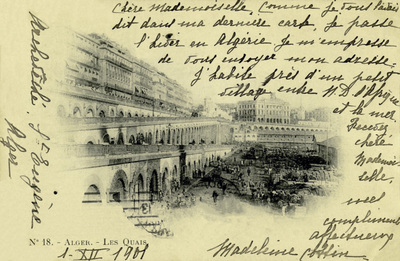 Chère Mademoiselle, Comme je vous l'avais
dit dans ma dernière carte, je passe
l'hiver en Algérie je m'empresse
de vous envoyer mon adresse.
J'habite près d'un petit
village entre N.D. d'Afrique
et la mer
Recevez
chère
Mademoi-
selle,
mes
compliments
affectueux
Madeleine
Nº 18. - ALGER. - LES QUAIS
1 - XII - 1901
St Eugène
Alger